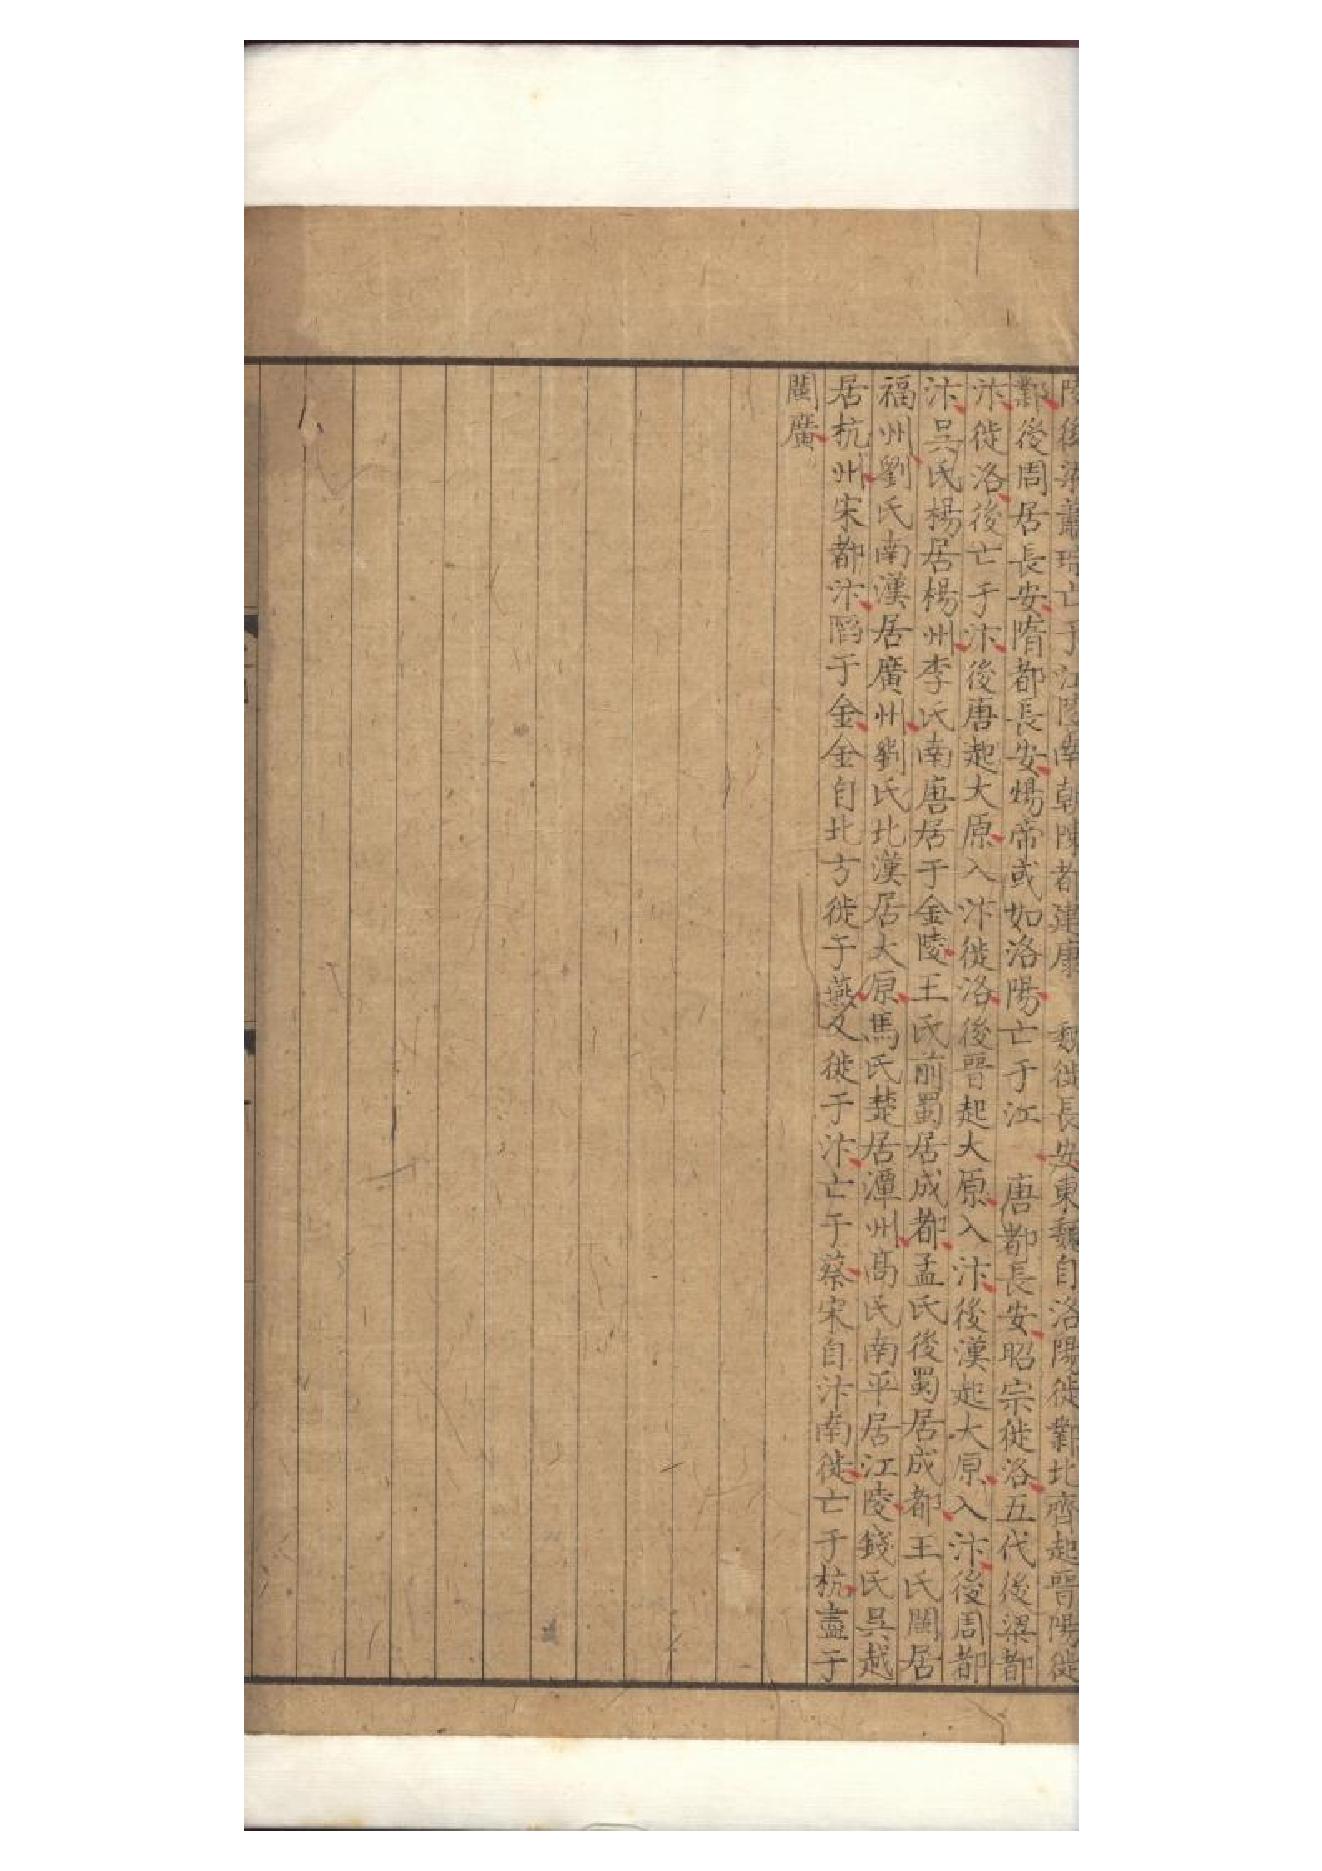 陵後梁蕭琮亡于江陵南朝陳都建康 魏徙長安東魏自洛陽徙鄴北齊起晉陽徙
鄴後周居長安隋都長安煬帝或如洛陽亡于江 唐都長安昭宗徙洛五代後梁都
汴徙洛後亡于汴後唐起大原入汴徙洛後晉起大原入汴後漢起大原入汴後周都
汴吳氏楊居楊州李氏南唐居于金陵王氏前蜀居成都孟氏後蜀居成都王氏閩居
福州劉氏南漢居廣州劉氏北漢居大原馬氏楚居潭州高氏南平居江陵錢氏吳越
居杭州宋都汴䧟于金金自北方徙于燕又徙于汴亡于蔡宋自汴南徙亡于杭盡于
閩廣